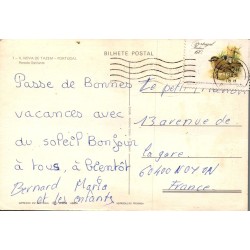 BILHETE POSTAL
Portugal
Passe de Bonnes
vacances avec
du soleil Bonjour
à tous, à bientôt
Bernard Maria
et les enfants
Le petit
13 avenue de
la gare.
60400 NOYON
France